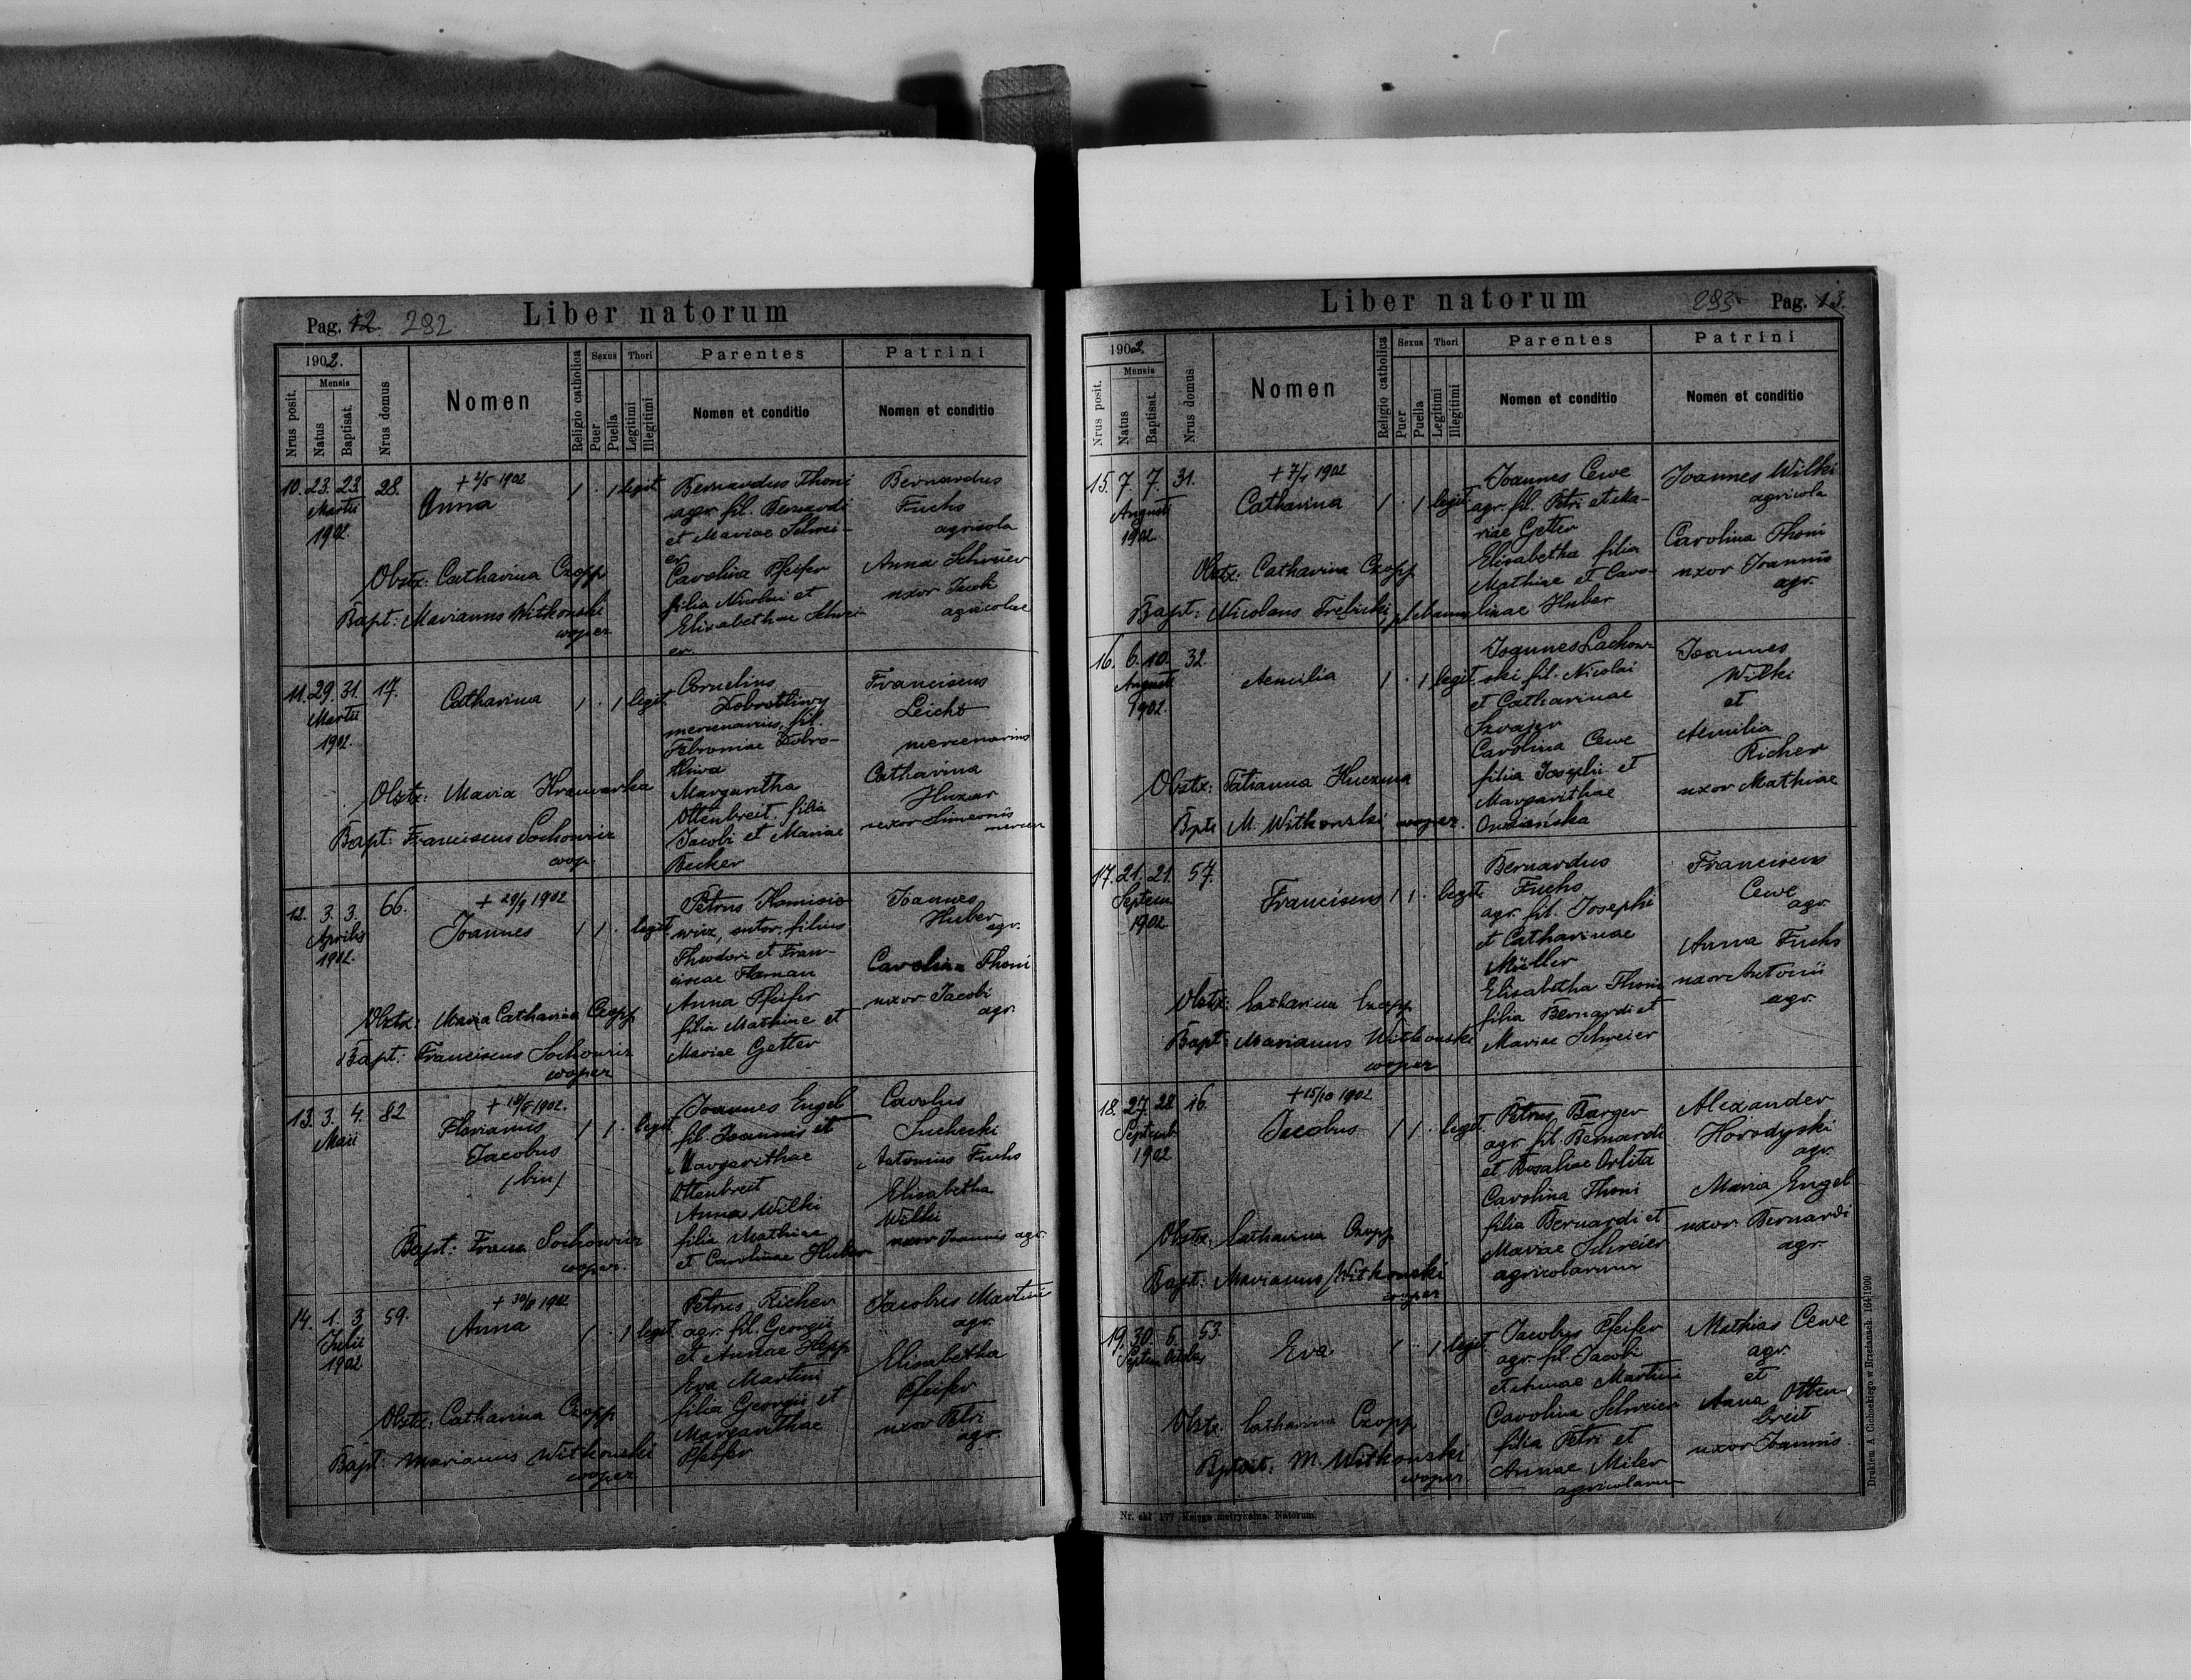 Pag. 12. 282
Liber natorum
1902.
Nrus posit.
Mensis
Natus
Baptisat.
Nrus domus
Nomen
Religio catholica
Sexus
Puer
Puella
Thori
Legitimi
Illegitimi
Parentes
Nomen et conditio
Patrini
Nomen et conditio
10. 23. 23. 28.
Martii
1902.
+ 2/5 1902
Anna
1 . 1 legit.
Bernardus Thoni
agr. fil. Bernardi
et Mariae Schrei-
er
Carolina Pfeifer
filia Nicolai et
Elisabethae Schrei
er
Bernardus
Fuchs
agricola
Anna Schreier
uxor Jacobi
agricolae
Obstx: Catharina Czopp
Bapt: Marianus Witkowski
cooper
11. 29. 31. 17.
Martii
1902.
Catharina
1 . 1 legit.
Cornelius
Dobrotliwy
mercenarius, fil.
Febroniae Dobro-
tliwa
Margaritha
Ottenbreit filia
Jacobi et Mariae
Becker
Franciscus
Leicht
mercenarius
Catharina
Huzar
uxor Simeonis
mercen
Obstx: Maria
Bapt: Franciscus Sochowicz
coop.
12. 3. 3. 66.
Aprilis
1902.
+ 29/9 1902
Joannes
1 1 . legit.
Petrus Kamisio
wicz, sutor, filius
Theodori et Fran-
ciscae Flaman
Anna Pfeifer
filia Mathiae et
Mariae Getter
Joannes
Huber
agr.
Carolina Thoni
uxor Jacobi
agr.
Obstx: Catharina Czopp
Bapt: Franciscus Sochowicz
cooper
13. 3. 4. 82
Maii
+ 18/5 1902.
Florianus
Jacobus
(bin)
1 1 . legit
Joannes Engel
fil. Joannis et
Margarithae
Ottenbreit
Anna Wilki
filia Mathiae
et Carolinae Huber
Carolus
Suchecki
Antonius Fuchs
Elisabetha
Wilki
uxor Joannis agr.
Bapt: Franc Sochowicz
cooper.
14. 1. 3. 59.
Julii
1902
+ 30/8 1902
Anna
1 . 1 legit.
Petrus Richer
agr. fil. Georgii
et Annae Hepp
Eva Martini
filia Georgii et
Margarithae
Pfeifer
Jacobus Martini
agr.
Elisabetha
Pfeifer
uxor Petri
agr.
Obstx: Catharina Czopp
Bapt: Marianus Witkowski
cooper
Liber natorum
283 Pag. 13.
1902.
Nrus posit.
Mensis
Natus
Baptisat.
Nrus domus
Nomen
Religio catholica
Sexus
Puer
Puella
Thori
Legitimi
Illegitimi
Parentes
Nomen et conditio
Patrini
Nomen et conditio
15. 7. 7. 31.
Augusti
1902
Catharina
1 . 1 legit.
Joannes Cewe
agr. fil. Petri et Ma-
riae Getter
Elisabetha filia
Mathiae et Caro-
linae Huber
Joannes Wilki
agricola
Carolina Thoni
uxor Joannis
agr.
Obstx: Catharina Czopp
Bapt: Nicolaus
16. 6. 10. 32.
Augusti
1902.
Aemilia
1 . 1 legit.
Joannes Lachow-
ski fil. Nicolai
et Catharinae
Carolina Cewe
filia Josephi et
Margarithae
Joannes
Wilki
et
Aemilia
Richer
uxor Mathiae
Obstx: Tatianna Kuczma
Bpts M. Witkowski cooper.
17. 21. 21. 57.
Septem
1902
Franciscus
1 1 . legit.
Bernardus
Fuchs
agr. fil. Josephi
et Catharinae
Müller
Elisabetha Thoni
filia Bernardi et
Mariae Schreier
Franciscus
Cewe
agr.
Anna Fuchs
uxor Antonii
agr.
Obstx: Catharina Czopp
Bapt: Marianus Witkowski
cooper
18. 27. 28 16.
Septemb.
1902
+ 15/10 1902
Jacobus
1 1 . legit.
Petrus Barger
agr. fil. Bernardi
et Rosaliae Orlita
Carolina Thoni
filia Bernardi et
Mariae Schreier
agricolarum
Alexander
Horodyski
agr.
Maria Engel
uxor Bernardi
agr.
Obstx: Catharina Czopp
Bapt: Marianus Witkowski
cooper
19. 30. 5. 53.
Septem Octobr
Eva
1 . 1 legit
Jacobus Pfeifer
agr. fil. Jacobi
et Annae Martini
Carolina Schreier
filia Petri et
Annae Miler
agricolarum
Mathias Cewe
agr.
et
Anna Otten-
breit
uxor Joannis.
Obstx. Catharina Czopp
Bptvit: M. Witkowski
cooper
Nr. skł. 177. Księga metrykalna. Natorum.
Drukiem A. Cichockiego w Brzeżanach. 164/1900